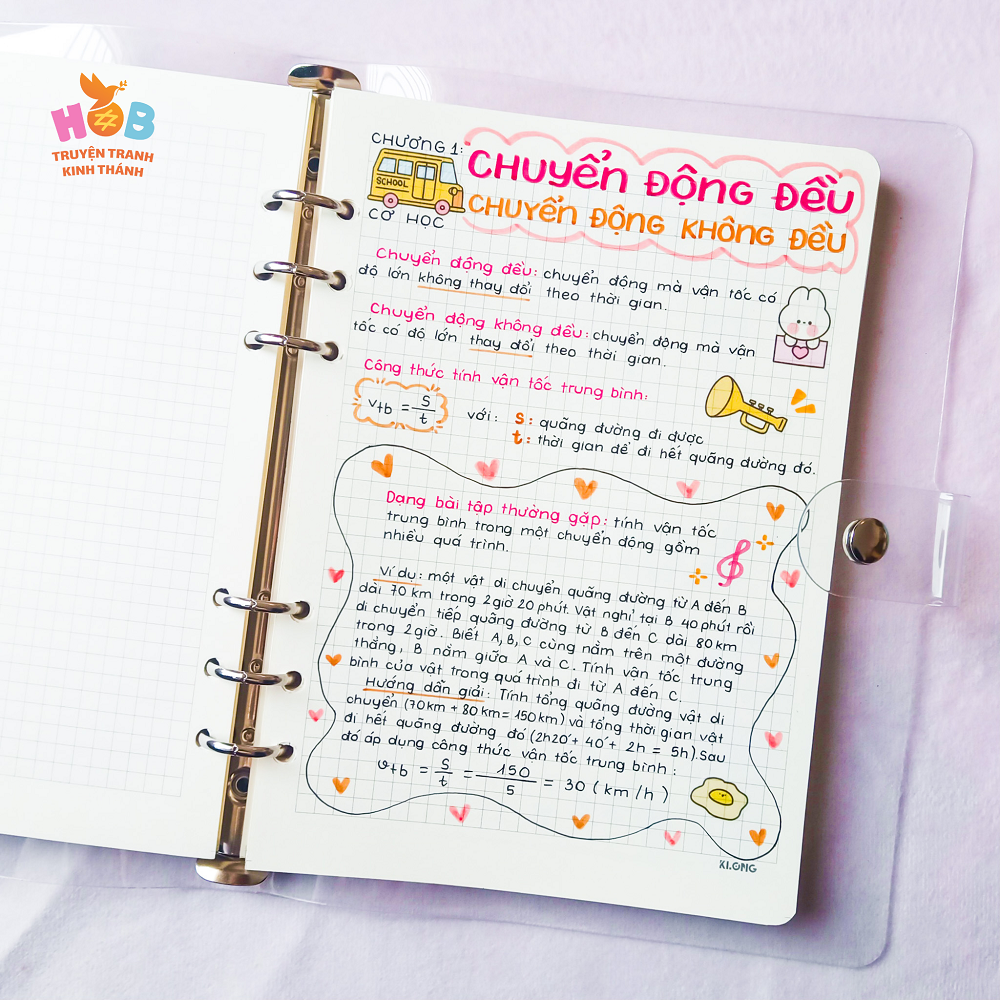 HOB
TRUYỆN TRANH
KINH THÁNH
CHƯƠNG 1:
SCHOOL
CƠ HỌC
CHUYỂN ĐỘNG ĐỀU
CHUYỂN ĐỘNG KHÔNG ĐỀU
Chuyển động đều: chuyển động mà vận tốc có
độ lớn không thay đổi theo thời gian.
Chuyển động không đều: chuyển động mà vận
tốc có độ lớn thay đổi theo thời gian.
Công thức tính vận tốc trung bình:
vtb = s/t với: s: quãng đường đi được
t: thời gian để đi hết quãng đường đó.
Dạng bài tập thường gặp: tính vận tốc
trung bình trong một chuyển động gồm
nhiều quá trình.
Ví dụ: một vật di chuyển quãng đường từ A đến B
dài 70 km trong 2 giờ 20 phút. Vật nghỉ tại B 40 phút rồi
di chuyển tiếp quãng đường từ B đến C dài 80 km
trong 2 giờ. Biết A, B, C cùng nằm trên một đường
thẳng, B nằm giữa A và C. Tính vận tốc trung
bình của vật trong quá trình đi từ A đến C.
Hướng dẫn giải: Tính tổng quãng đường vật di
chuyển (70km + 80km = 150km) và tổng thời gian vật
đi hết quãng đường đó (2h20' + 40' + 2h = 5h). Sau
đó áp dụng công thức vận tốc trung bình:
vtb = s/t = 150/5 = 30 (km/h)
KI.ONG